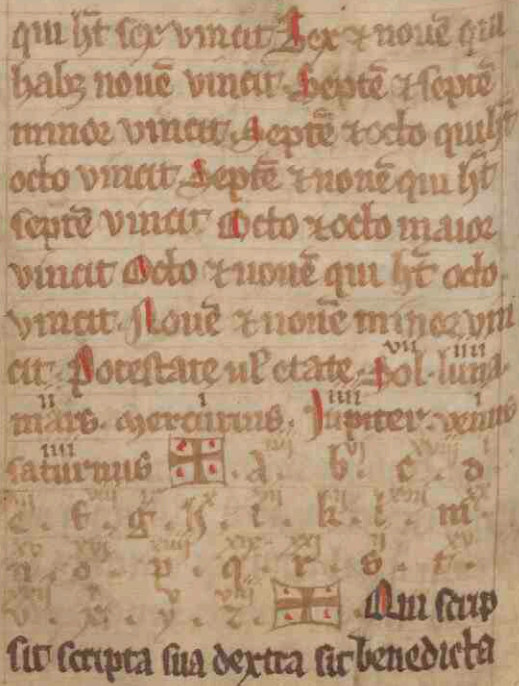 qui ht̄ sex vincit Sex ⁊ nouē qui
habꝫ nouē vincit Septē ⁊ septē
minor vincit Septē ⁊ octo qui ht̄
octo vincit Septē ⁊ nouē qui ht̄
septē vincit Octo ⁊ octo maior
vincit Octo ⁊ nouē qui ht̄ octo.
vincit. Nouē ⁊ nouē minor vin
vii iiii
cit. Potestate ul' etate. Sol. luna.
ii i iiii i
mars. mercurius. Jupiter. venus
iiii
saturnus . a. b. c. d.
e. f. g. h. i. k. l. m
n. o. p. q. r. s. t.
v. x. y. z. Qui scrip
sit scripta sua dextra sit benedicta